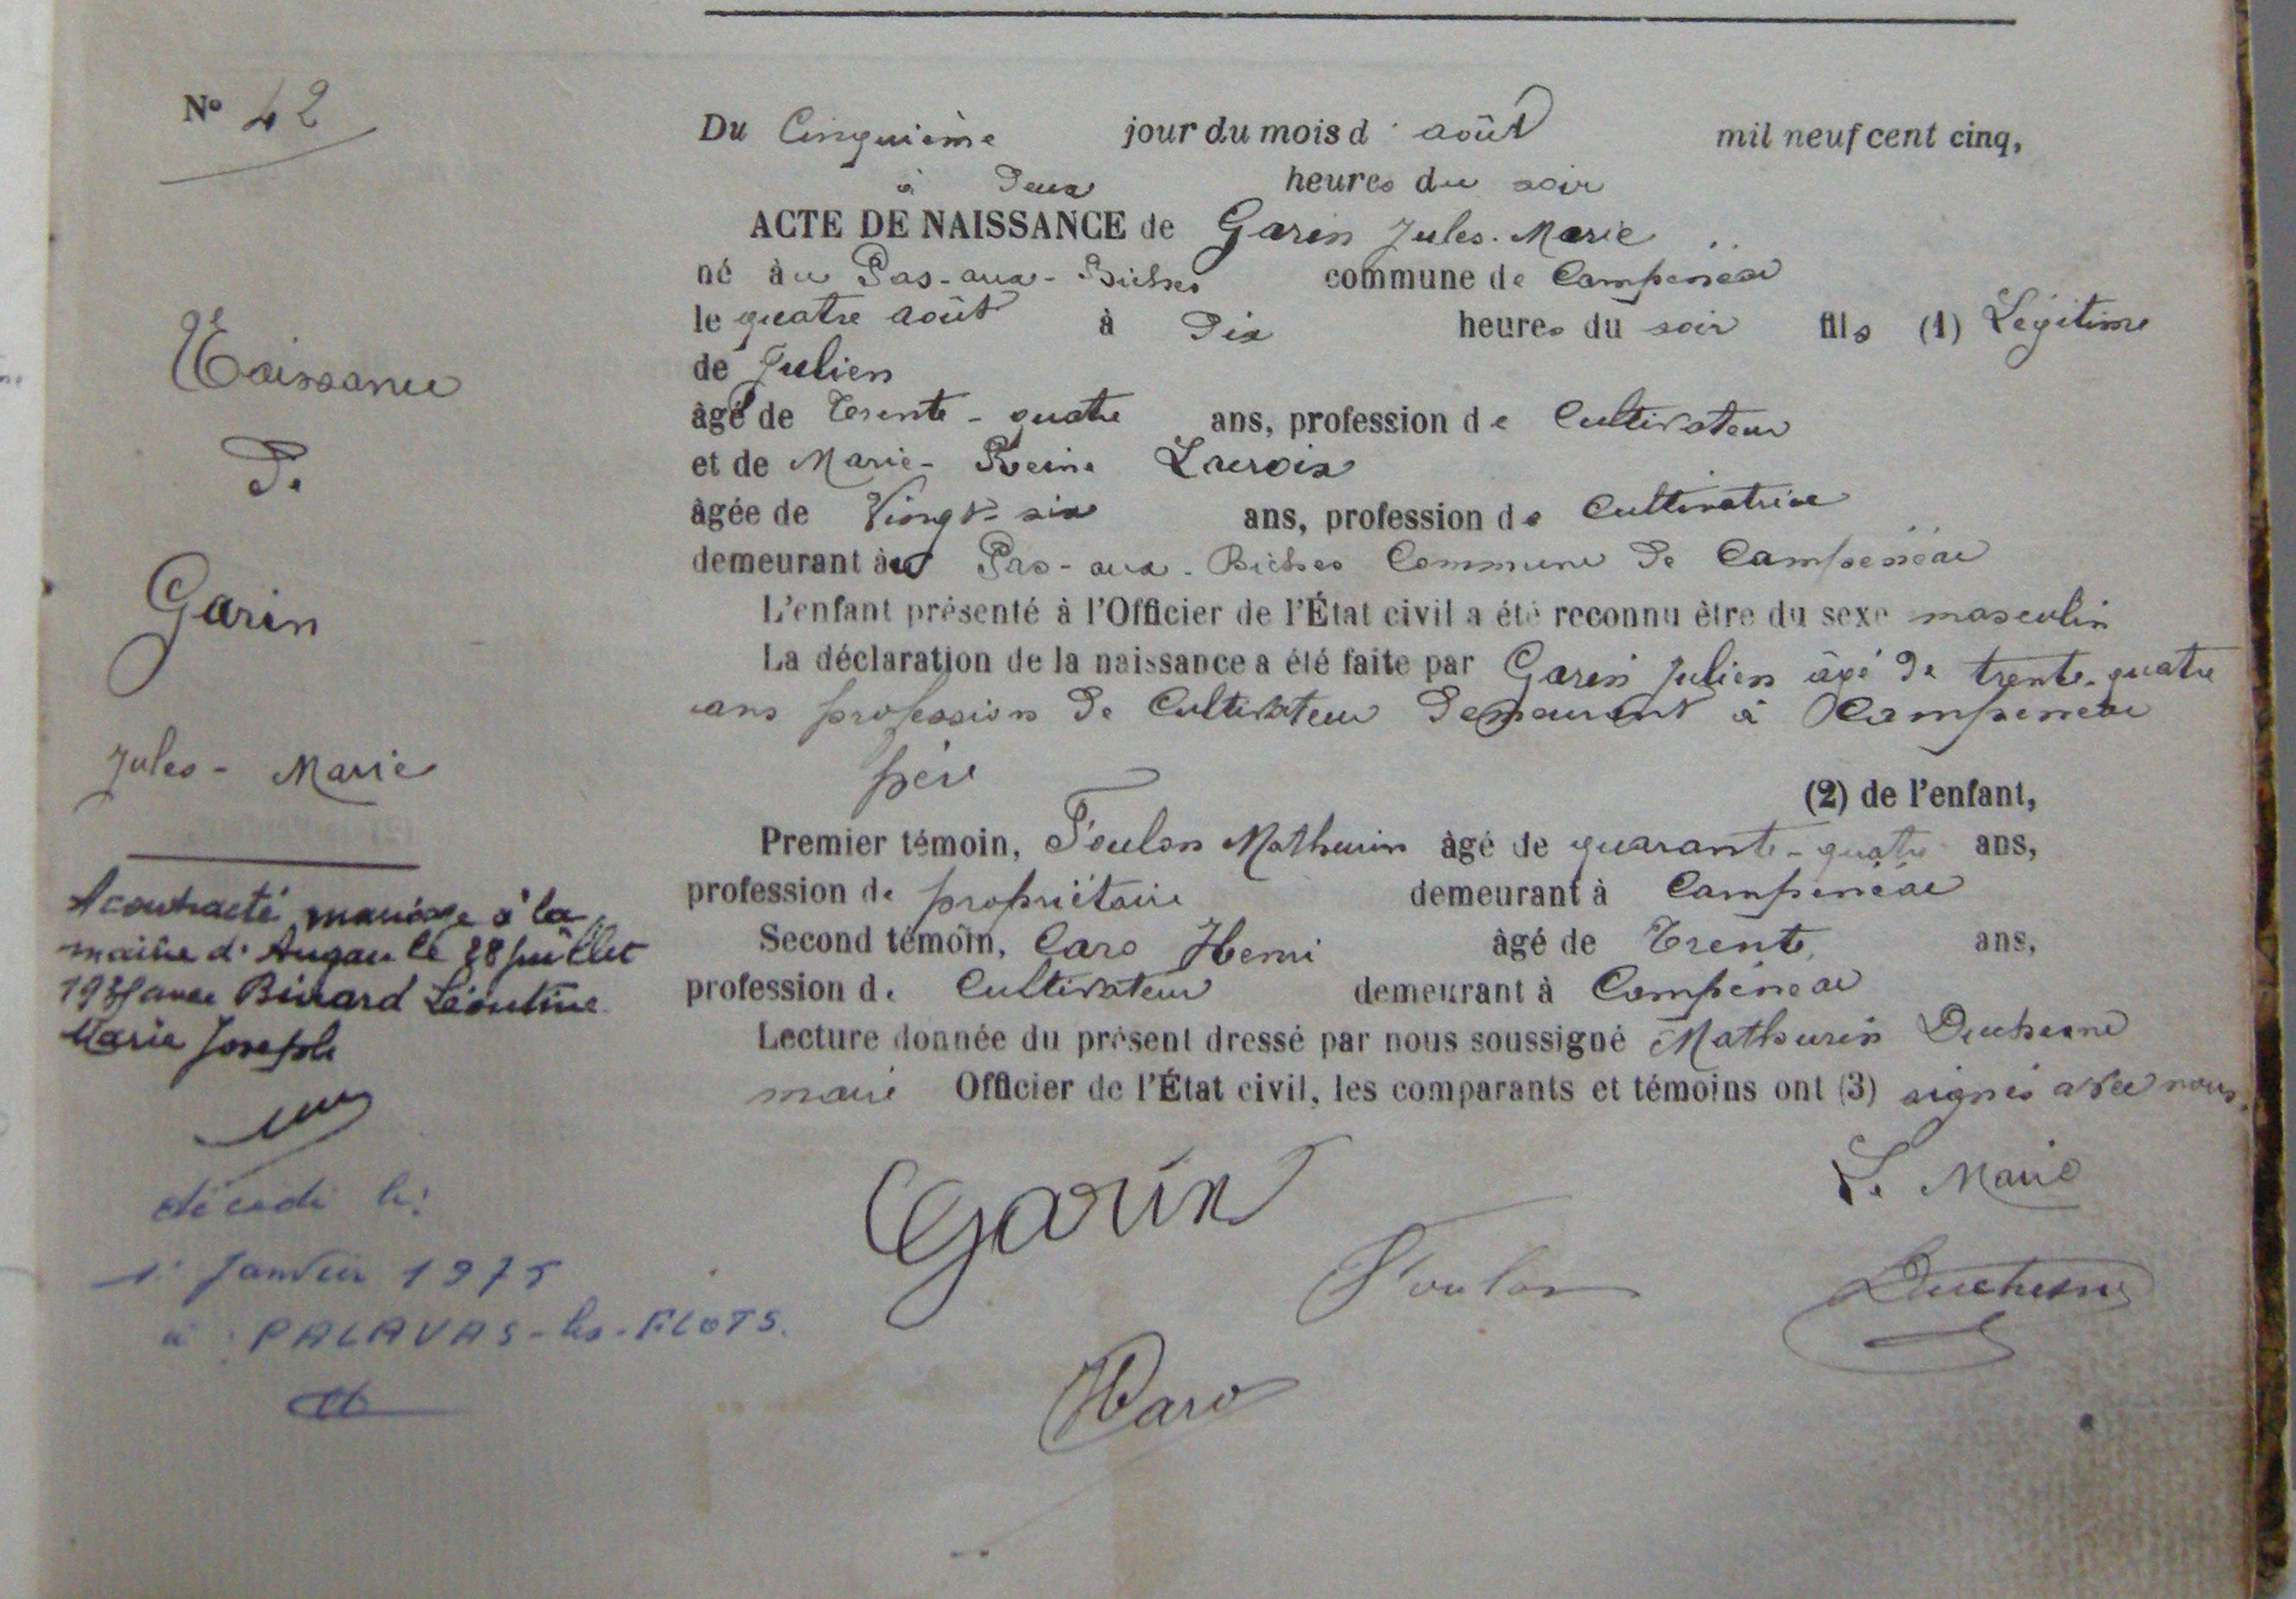 N° 42
Naissance
De
Garin
Jules - Marie
A contracté mariage à la
mairie d'Augan le 28 juillet
avec Léontine
Marie Joseph
décédé le
1er Janvier 1975
à PALAVAS-les-FLOTS.
Du Cinquième jour du mois d'août mil neuf cent cinq,
à Deux heures du soir
ACTE DE NAISSANCE de Garin Jules-Marie
né àu Pas-aux-Biches commune de Campénéac
le quatre août à Dix heures du soir fils (1) Légitime
de Julien
âgé de Trente-quatre ans, profession de Cultivateur
et de Marie-Reine Lacroix
âgée de Vingt-six ans, profession de Cultivatrice
demeurant àu Pas-aux-Biches Commune de Campénéac
L'enfant présenté à l'Officier de l'État civil a été reconnu être du sexe masculin
La déclaration de la naissance a été faite par Garin Julien âgé de trente-quatre
ans profession de Cultivateur Demeurant à Campénéac
père
(2) de l'enfant,
Premier témoin, Foulon Mathurin âgé de quarante-quatre ans,
profession de propriétaire demeurant à Campénéac
Second témoin, Caro Henri âgé de Trente ans,
profession de Cultivateur demeurant à Campénéac
Lecture donnée du présent dressé par nous soussigné Mathurin Duchesne
maire Officier de l'État civil, les comparants et témoins ont (3) signés avec nous.
Le Maire
Garin
Foulon
Duchesne
HCaro